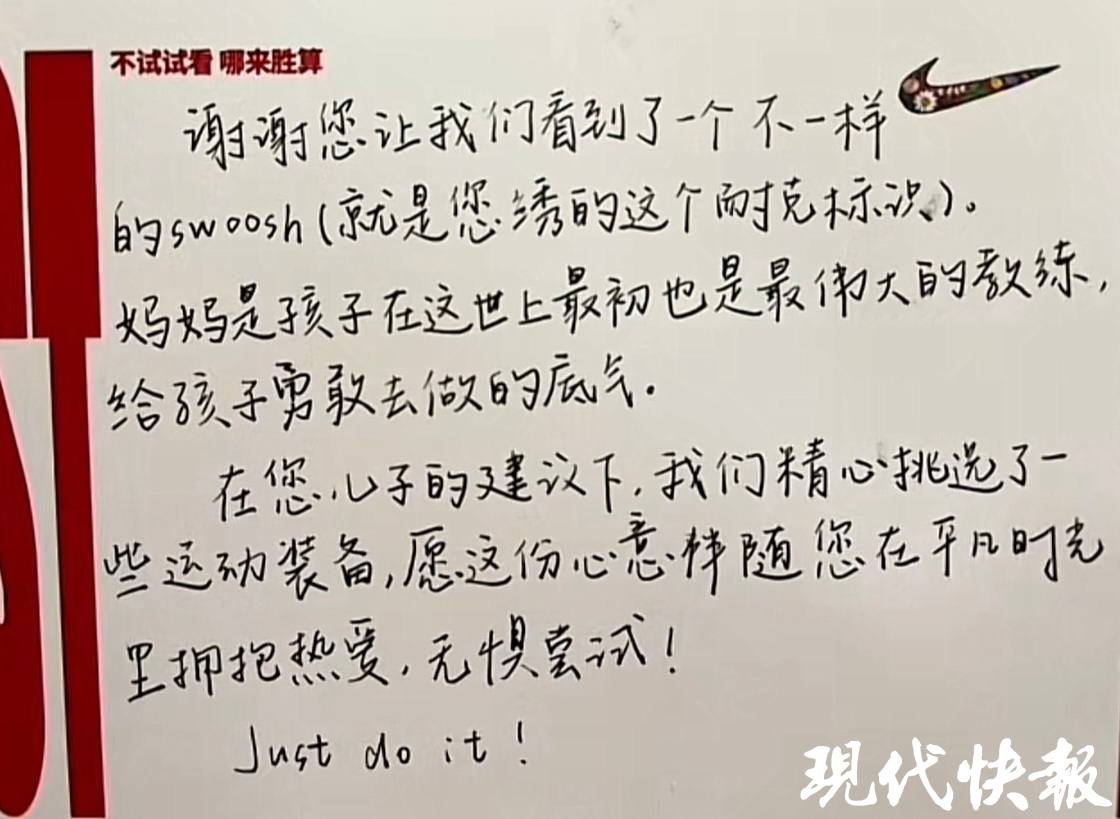 不试试看 哪来胜算
谢谢您让我们看到了一个不一样
的swoosh(就是您绣的这个耐克标识)。
妈妈是孩子在这世上最初也是最伟大的教练，
给孩子勇敢去做的底气。
在您儿子的建议下，我们精心挑选了一
些运动装备，愿这份心意伴随您在平凡时光
里拥抱热爱，无惧尝试！
Just do it！
现代快報